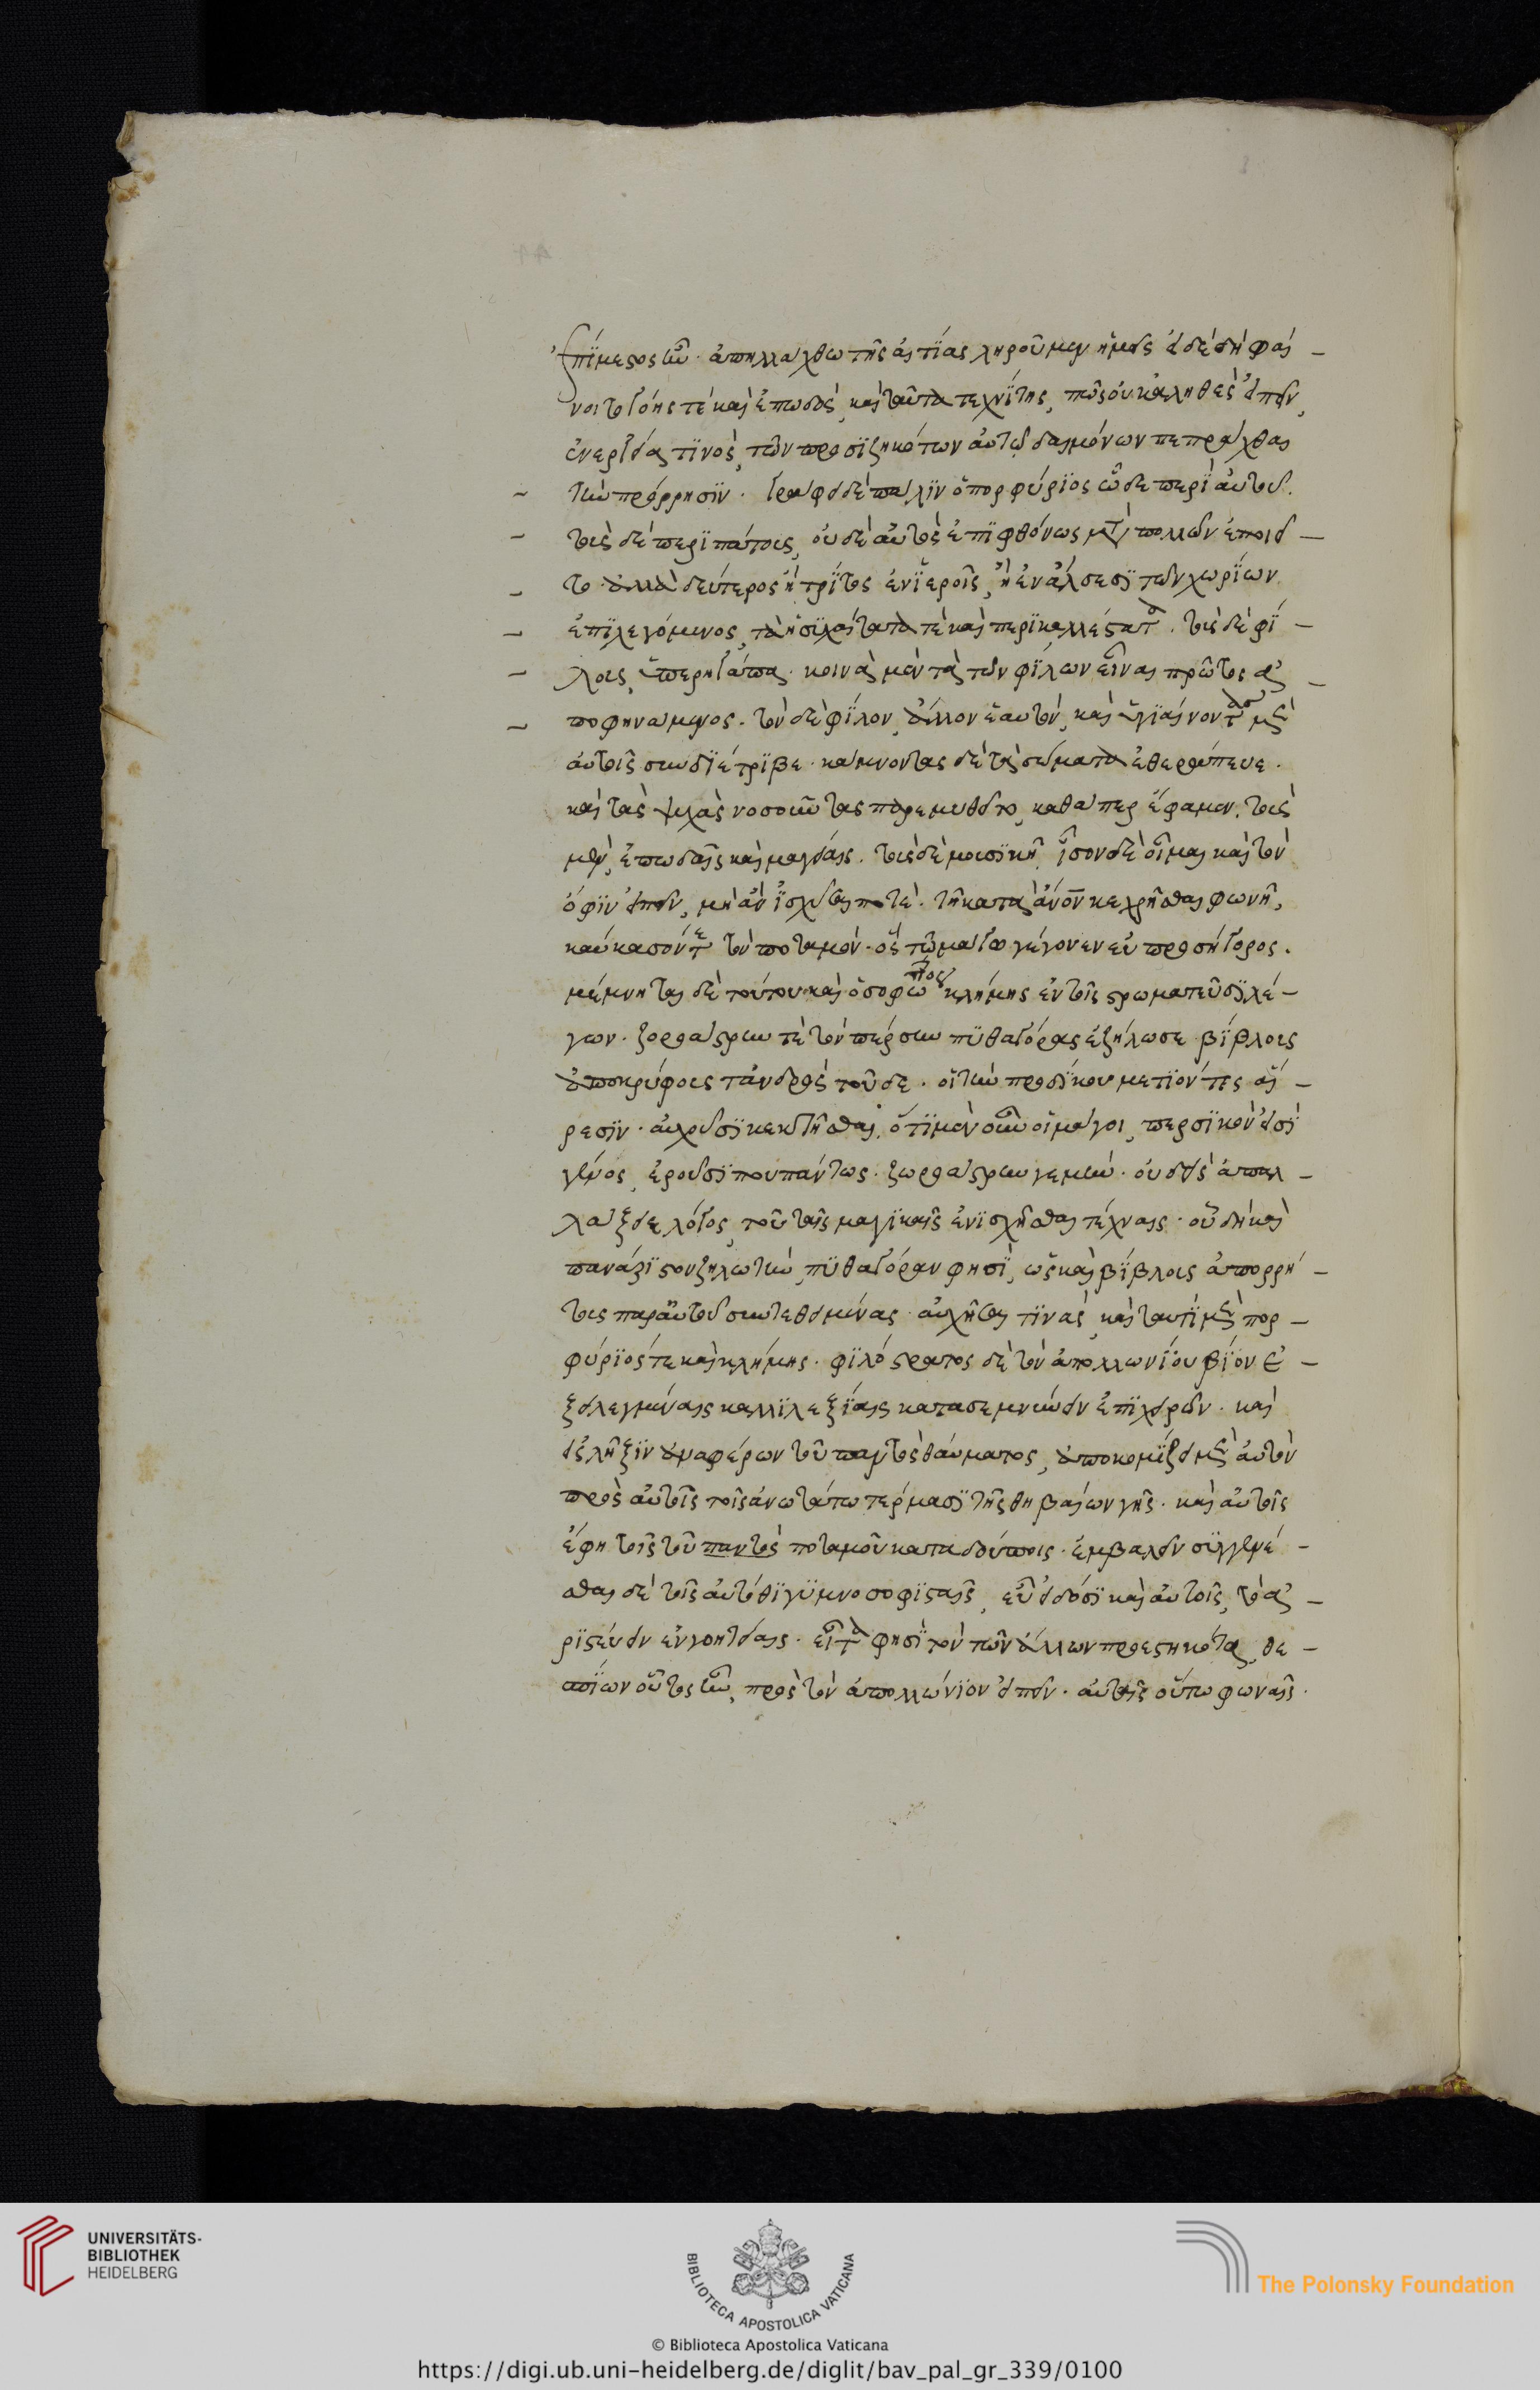 ἐπίμεστος ἦν. ἀπηλλάχθω τῆς αἰτίας ληροῦμεν ἡμεῖς· εἰ δὲ δὴ φαί-
νοιτο γόης τὲ καὶ ἐπωδὸς, καὶ ταῦτα τεχνίτης, πῶς οὐκ ἀληθὲς εἰπεῖν,
ἐνεργείᾳ τινὸς, τῶν προσϊζηκότων αὐτῷ δαιμόνων πεπρᾶχθαι
τὴν πρόρρησϊν. γράφει δὲ πάλϊν ὁ πορφύρϊος ὧδε περὶ αὐτοῦ.
τοὺς δὲ περϊπάτους, οὐδὲ αὐτὸς ἐπϊφθόνως μετὰ πολλῶν ἐποιεῖ-
το. ἀλλὰ δεύτερος ἢ τρίτος ἐν ἱεροῖς, ἢ ἐν ἄλσεσϊ τῶν χωρϊων
ἐπϊλεγόμενος, τὰ ἡσϊχαίτατα τὲ καὶ περϊκαλλέστατα. τοὺς δὲ φϊ-
λους, ὑπερηγάπα. κοινὰ μὲν τὰ τῶν φϊλων εἶναι πρῶτος ἀ-
ποφηνάμενος. τὸν δὲ φϊλον, ἄλλον ἑαυτόν, καὶ ὑγϊαίνουσι μὲν
αὐτοῖς συνδϊέτρϊβε. κάμνοντας δὲ τὰ σώματα ἐθεράπευε.
καὶ τὰς ψυχὰς νοσοῦντας παρεμυθεῖτο, καθάπερ ἔφαμεν. τοὺς
μὲν, ἐπωδαῖς καὶ μαγείαις. τοὺς δὲ μουσϊκῇ. ἴσον δὲ οἶμαι καὶ τὸν
ὄφϊν εἰπεῖν, μὴ ἂν ἰσχῦσαί ποτε. τῇ κατὰ ἄνον κεχρῆσθαι φωνῇ,
καύκασόν τε τὸν ποταμόν. ὃς τῷ μάγῳ γέγονεν εὐπροσήγορος.
μέμνηται δὲ τούτου καὶ ὁ σοφώτατος κλήμης ἐν τοῖς στρωματεῦσϊ λέ-
γων. ζοροάστρην τὲ τὸν πέρσην πϋθαγόρας ἐζήλωσε. βίβλους
ἀποκρύφους τἀνδρὸς τοῦδε. οἱ τὴν προδϊκου μετϊόντες αἵ-
ρεσϊν. αὐχοῦσϊ κεκτῆσθαι, ὅτϊ μὲν οὖν οἱ μάγοι, περσϊκὸν εἰσϊ
γένος, ἐροῦσϊ που πάντως. ζωροάστρην γε μὴν. οὐδεὶς ἀπαλ-
λάξει λόγος, τοῦ ταῖς μαγϊκαῖς ἐνϊσχῆσθαι τέχναις. οὗ δὴ καὶ
πανάρϊστον ζηλωτὴν, πϋθαγόραν φησϊ, ὡς καὶ βίβλους ἀπορρή-
τους παρ' αὐτοῦ συντεθειμένας. αὐχῆσαι τϊνας, καὶ ταυτὶ μὲν πορ-
φύρϊός τε καὶ κλήμης. φϊλόστρατος δὲ τὸν ἀπολλωνίου βίον ἐ-
ξειλεγμέναις καλλϊλεξϊαις κατασεμνύνειν ἐπϊχειρῶν. καὶ
εἰς λῆξϊν ἀναφέρων τοῦ παντὸς θαύματος, ἀποκομίζει μὲν αὐτὸν
πρὸς αὐτοῖς τοῖς ἀνωτάτω τέρμασϊ τῆς θηβαίων γῆς. καὶ αὐτοῖς
ἔφη τοῖς τοῦ παντὸς ποταμοῦ καταδούποις. ἐμβαλεῖν συγγενέ-
σθαι δὲ τοῖς αὐτόθϊ γϋμνοσοφϊσταῖς, εὖ εἰδόσϊ καὶ αὐτοῖς, τὸ ἀ-
ρϊστεύειν ἐν γοητείαις. εἶτα φησϊ τὸν τῶν ἄλλων προεστηκότα, θε-
σπϊων οὗτος ἦν, πρὸς τὸν ἀπολλώνϊον εἰπεῖν. αὐταῖς οὕτω φωναῖς.
UNIVERSITÄTS-
BIBLIOTHEK
HEIDELBERG
BIBLIOTECA APOSTOLICA VATICANA
The Polonsky Foundation
© Biblioteca Apostolica Vaticana
https://digi.ub.uni-heidelberg.de/diglit/bav_pal_gr_339/0100